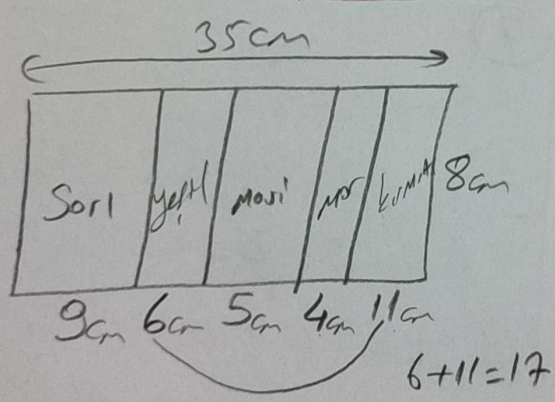 35cm
Sarı yeşil mavi mor kırmızı 8cm
9cm 6cm 5cm 4cm 11cm
6+11=17